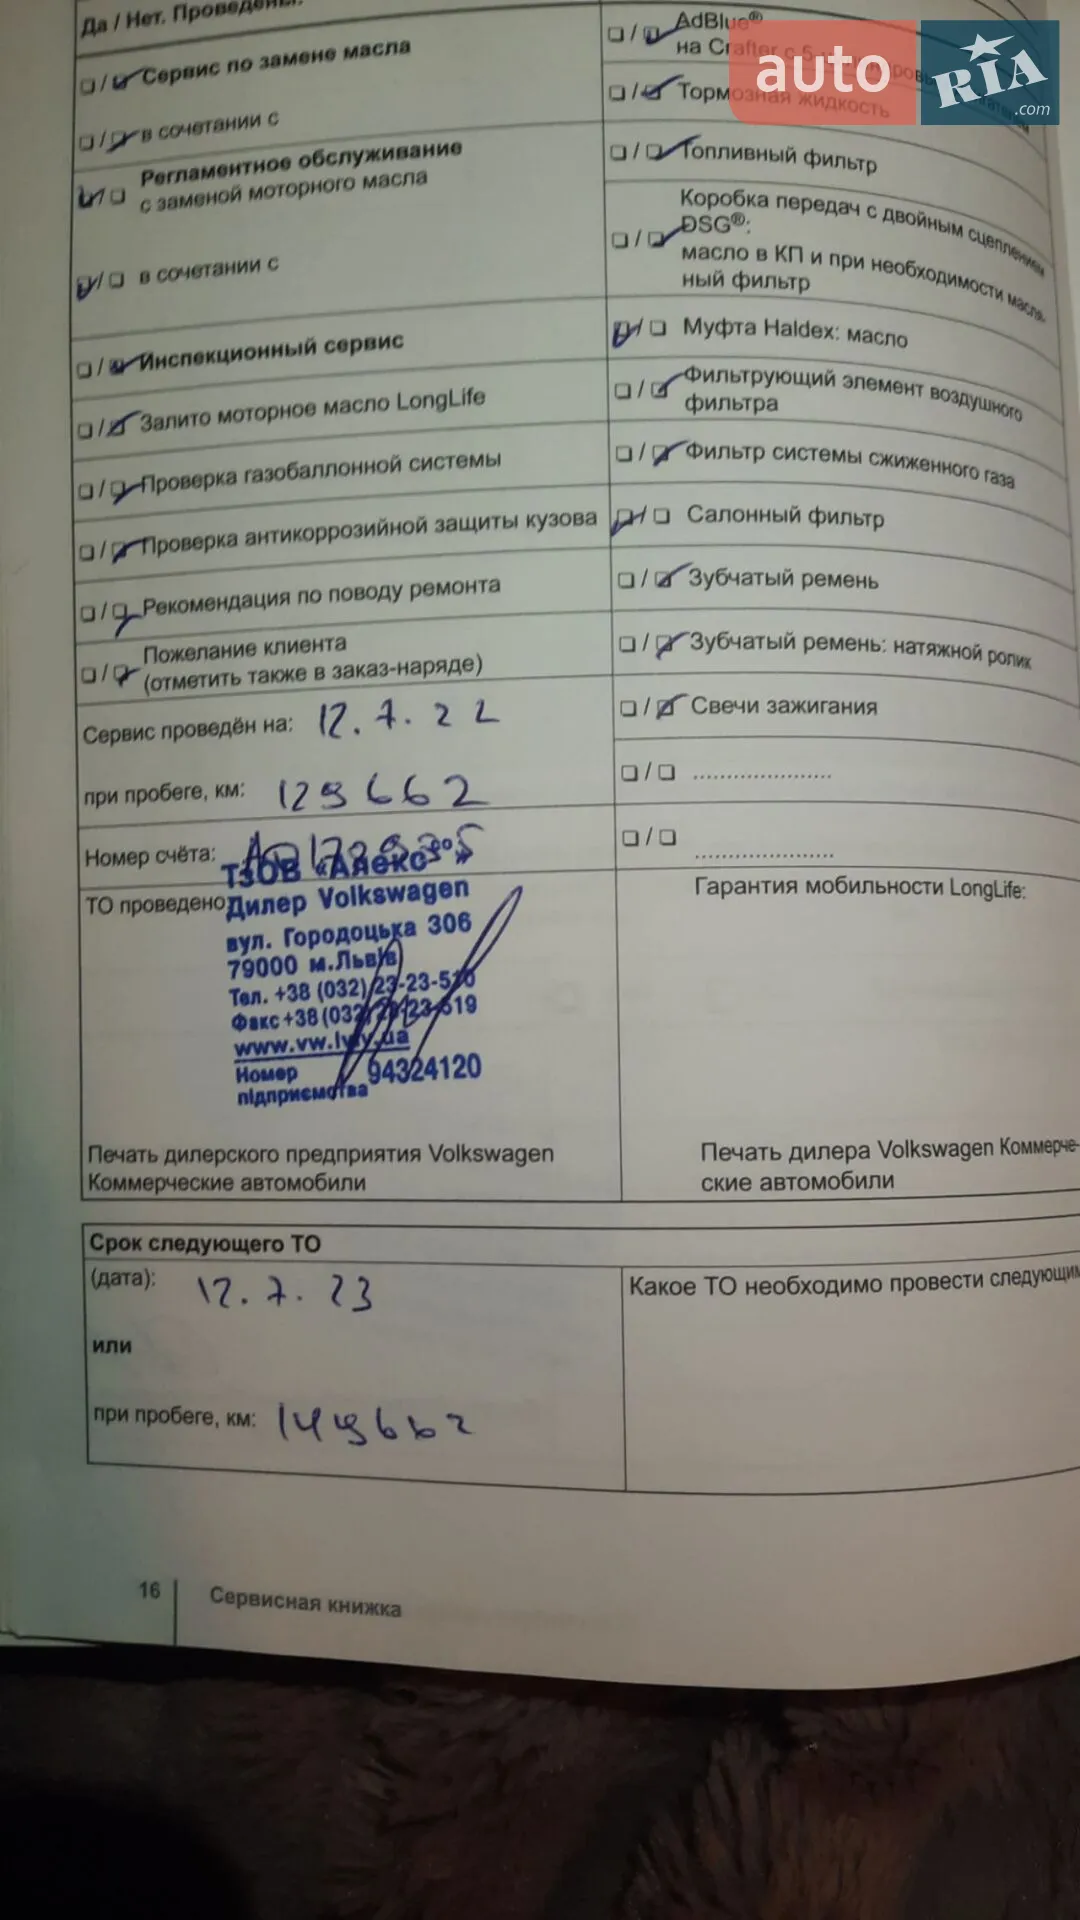 Да / Нет. Проведены:
❏ / ❏ Сервис по замене масла
❏ / ❏ в сочетании с
❏ / ❏ Регламентное обслуживание
с заменой моторного масла
❏ / ❏ в сочетании с
❏ / ❏ Инспекционный сервис
❏ / ❏ Залито моторное масло LongLife
❏ / ❏ Проверка газобаллонной системы
❏ / ❏ Проверка антикоррозийной защиты кузова
❏ / ❏ Рекомендация по поводу ремонта
❏ / ❏ Пожелание клиента
(отметить также в заказ-наряде)
Сервис проведён на: 12.7.22
при пробеге, км: 129662
Номер счёта:
ТО проведено:
ТзОВ «Алекс °°»
Дилер Volkswagen
вул. Городоцька 306
79000 м.Львів
Тел. +38 (032) 23-23-510
Факс +38 (032) 23-23-519
www.vw.lviv.ua
Номер 94324120
підприємства
Печать дилерского предприятия Volkswagen
Коммерческие автомобили
❏ / ❏ AdBlue®
на Crafter с 5-
❏ / ❏ Тормозная жидкость
❏ / ❏ Топливный фильтр
Коробка передач с двойным сцеплением
❏ / ❏ DSG®:
масло в КП и при необходимости масля-
ный фильтр
❏ / ❏ Муфта Haldex: масло
❏ / ❏ Фильтрующий элемент воздушного
фильтра
❏ / ❏ Фильтр системы сжиженного газа
❏ / ❏ Салонный фильтр
❏ / ❏ Зубчатый ремень
❏ / ❏ Зубчатый ремень: натяжной ролик
❏ / ❏ Свечи зажигания
❏ / ❏ .....................
❏ / ❏ .....................
Гарантия мобильности LongLife:
Печать дилера Volkswagen Коммерче-
ские автомобили
Срок следующего ТО
(дата): 12.7.23
или
при пробеге, км: 149662
Какое ТО необходимо провести следующим
16 Сервисная книжка
auto RIA .com